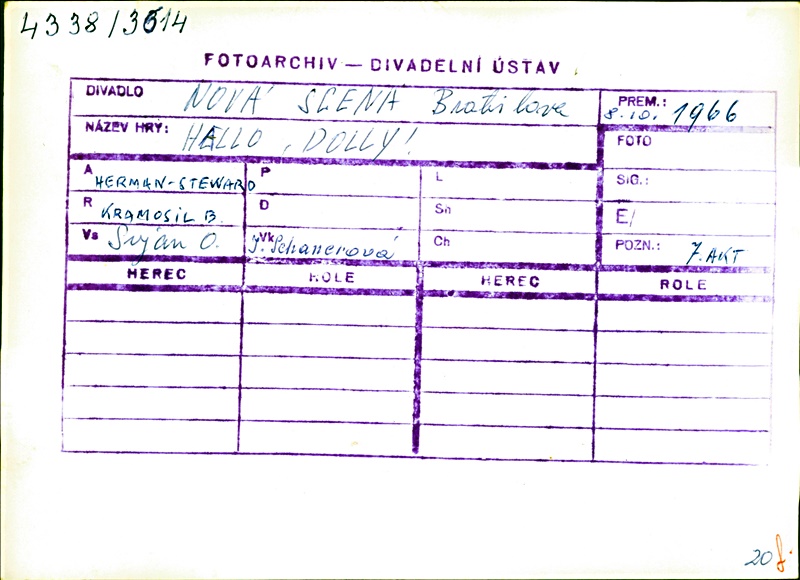 4338/3614
FOTOARCHIV — DIVADELNÍ ÚSTAV
DIVADLO NOVÁ SCENA Bratislava PREM.: 8.10. 1966
NÁZEV HRY: HELLO, DOLLY! FOTO
A HERMAN-STEWARD P L SIG.:
R KRAMOSIL B. D Sn E/
Vs Šuján O. Vk Ch POZN.: 7. AKT
HEREC ROLE HEREC ROLE
20